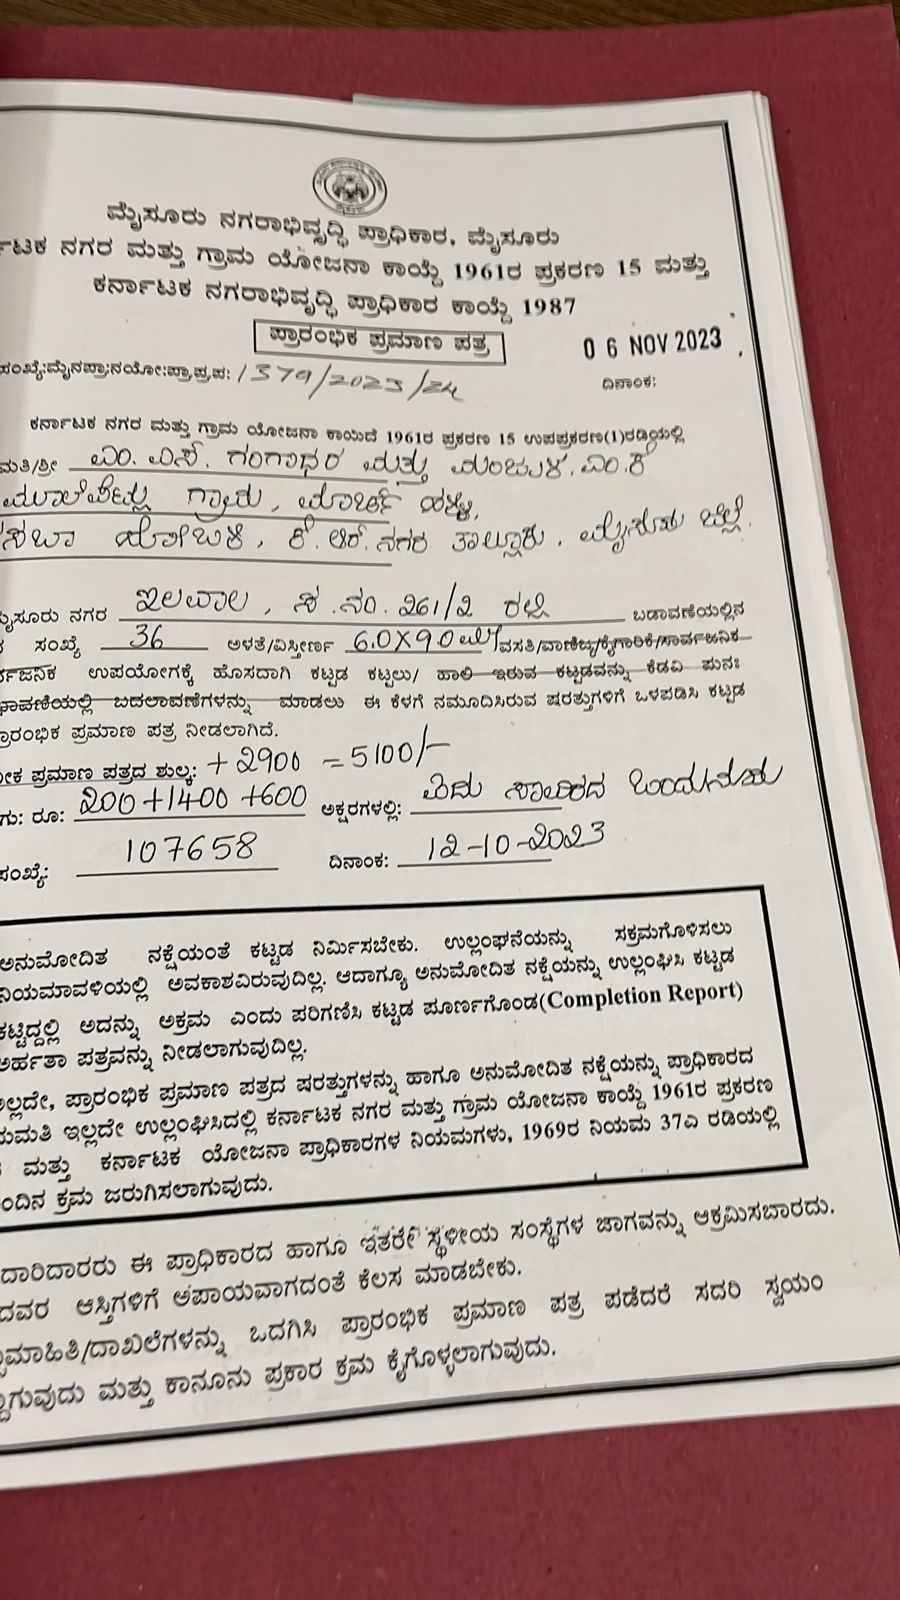 ಮೈಸೂರು ನಗರಾಭಿವೃದ್ಧಿ ಪ್ರಾಧಿಕಾರ, ಮೈಸೂರು
ರ್ಾಟಕ ನಗರ ಮತ್ತು ಗ್ರಾಮ ಯೋಜನಾ ಕಾಯ್ದೆ 1961ರ ಪ್ರಕರಣ 15 ಮತ್ತು
ಕರ್ನಾಟಕ ನಗರಾಭಿವೃದ್ಧಿ ಪ್ರಾಧಿಕಾರ ಕಾಯ್ದೆ 1987
ಪ್ರಾರಂಭಿಕ ಪ್ರಮಾಣ ಪತ್ರ
0 6 NOV 2023
ಸಂಖ್ಯೆ:ಮೈನಪ್ರಾ:ನಯೋ:ಪ್ರಾ.ಪ್ರ.ಪ: /379/2023/24 ದಿನಾಂಕ:
ಕರ್ನಾಟಕ ನಗರ ಮತ್ತು ಗ್ರಾಮ ಯೋಜನಾ ಕಾಯಿದೆ 1961ರ ಪ್ರಕರಣ 15 ಉಪಪ್ರಕರಣ(1)ರಡಿಯಲ್ಲಿ
ಮತಿ/ಶ್ರೀ ಎಂ. ಎಸ್. ಗಂಗಾಧರ ಮತ್ತು ಮಂಜುಳ. ಎಂ.ಕೆ
ಗ್ರಾಮ,
ಹೋಬಳಿ, ಕೆ. ಆರ್. ನಗರ ತಾಲ್ಲೂಕು, ಮೈಸೂರು ಜಿಲ್ಲೆ.
ಮೈಸೂರು ನಗರ ಇಲವಾಲ, ಸ.ನಂ. 261/2 ರಲ್ಲಿ ಬಡಾವಣೆಯಲ್ಲಿನ
ಸಂಖ್ಯೆ 36 ಅಳತೆ/ವಿಸ್ತೀರ್ಣ 6.0X9.0ಮೀ ವಸತಿ/ವಾಣಿಜ್ಯ/ಕೈಗಾರಿಕೆ/ಸಾರ್ವಜನಿಕ
ರ್ವಜನಿಕ ಉಪಯೋಗಕ್ಕೆ ಹೊಸದಾಗಿ ಕಟ್ಟಡ ಕಟ್ಟಲು/ ಹಾಲಿ ಇರುವ ಕಟ್ಟಡವನ್ನು ಕೆಡವಿ ಪುನಃ
ಬದಲಾವಣೆಗಳನ್ನು ಮಾಡಲು ಈ ಕೆಳಗೆ ನಮೂದಿಸಿರುವ ಷರತ್ತುಗಳಿಗೆ ಒಳಪಡಿಸಿ ಕಟ್ಟಡ
ರಾರಂಭಿಕ ಪ್ರಮಾಣ ಪತ್ರ ನೀಡಲಾಗಿದೆ.
ಪ್ರಮಾಣ ಪತ್ರದ ಶುಲ್ಕ: + 2900 = 5100/-
ರೂ: 200+1400+600 ಅಕ್ಷರಗಳಲ್ಲಿ: ಐದು ಸಾವಿರದ ಒಂದುನೂರು
ಸಂಖ್ಯೆ: 107658 ದಿನಾಂಕ: 12-10-2023
ಅನುಮೋದಿತ ನಕ್ಷೆಯಂತೆ ಕಟ್ಟಡ ನಿರ್ಮಿಸಬೇಕು. ಉಲ್ಲಂಘನೆಯನ್ನು ಸಕ್ರಮಗೊಳಿಸಲು
ನಿಯಮಾವಳಿಯಲ್ಲಿ ಅವಕಾಶವಿರುವುದಿಲ್ಲ. ಆದಾಗ್ಯೂ ಅನುಮೋದಿತ ನಕ್ಷೆಯನ್ನು ಉಲ್ಲಂಘಿಸಿ ಕಟ್ಟಡ
ಕಟ್ಟಿದ್ದಲ್ಲಿ ಅದನ್ನು ಅಕ್ರಮ ಎಂದು ಪರಿಗಣಿಸಿ ಕಟ್ಟಡ ಪೂರ್ಣಗೊಂಡ(Completion Report)
ಅರ್ಹತಾ ಪತ್ರವನ್ನು ನೀಡಲಾಗುವುದಿಲ್ಲ.
ಅಲ್ಲದೇ, ಪ್ರಾರಂಭಿಕ ಪ್ರಮಾಣ ಪತ್ರದ ಷರತ್ತುಗಳನ್ನು ಹಾಗೂ ಅನುಮೋದಿತ ನಕ್ಷೆಯನ್ನು ಪ್ರಾಧಿಕಾರದ
ನುಮತಿ ಇಲ್ಲದೇ ಉಲ್ಲಂಘಿಸಿದಲ್ಲಿ ಕರ್ನಾಟಕ ನಗರ ಮತ್ತು ಗ್ರಾಮ ಯೋಜನಾ ಕಾಯ್ದೆ 1961ರ ಪ್ರಕರಣ
ಮತ್ತು ಕರ್ನಾಟಕ ಯೋಜನಾ ಪ್ರಾಧಿಕಾರಗಳ ನಿಯಮಗಳು, 1969ರ ನಿಯಮ 37ಎ ರಡಿಯಲ್ಲಿ
ಂದಿನ ಕ್ರಮ ಜರುಗಿಸಲಾಗುವುದು.
ದಾರಿದಾರರು ಈ ಪ್ರಾಧಿಕಾರದ ಹಾಗೂ ಇತರೇ ಸ್ಥಳೀಯ ಸಂಸ್ಥೆಗಳ ಜಾಗವನ್ನು ಆಕ್ರಮಿಸಬಾರದು.
ದವರ ಆಸ್ತಿಗಳಿಗೆ ಅಪಾಯವಾಗದಂತೆ ಕೆಲಸ ಮಾಡಬೇಕು.
ಮಾಹಿತಿ/ದಾಖಲೆಗಳನ್ನು ಒದಗಿಸಿ ಪ್ರಾರಂಭಿಕ ಪ್ರಮಾಣ ಪತ್ರ ಪಡೆದರೆ ಸದರಿ ಸ್ವಯಂ
ದ್ದಾಗುವುದು ಮತ್ತು ಕಾನೂನು ಪ್ರಕಾರ ಕ್ರಮ ಕೈಗೊಳ್ಳಲಾಗುವುದು.